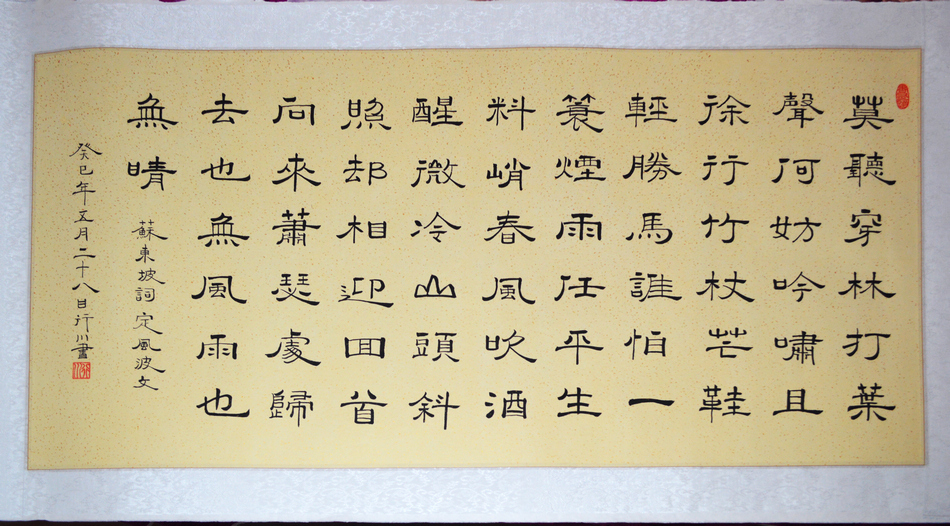 莫聽穿林打葉
聲何妨吟嘯且
徐行竹杖芒鞋
輕勝馬誰怕一
簑煙雨任平生
料峭春風吹酒
醒微冷山頭斜
照却相迎回首
向來蕭瑟處歸
去也無風雨也
無晴
蘇東坡詞定風波文
癸巳年五月二十八日行川書